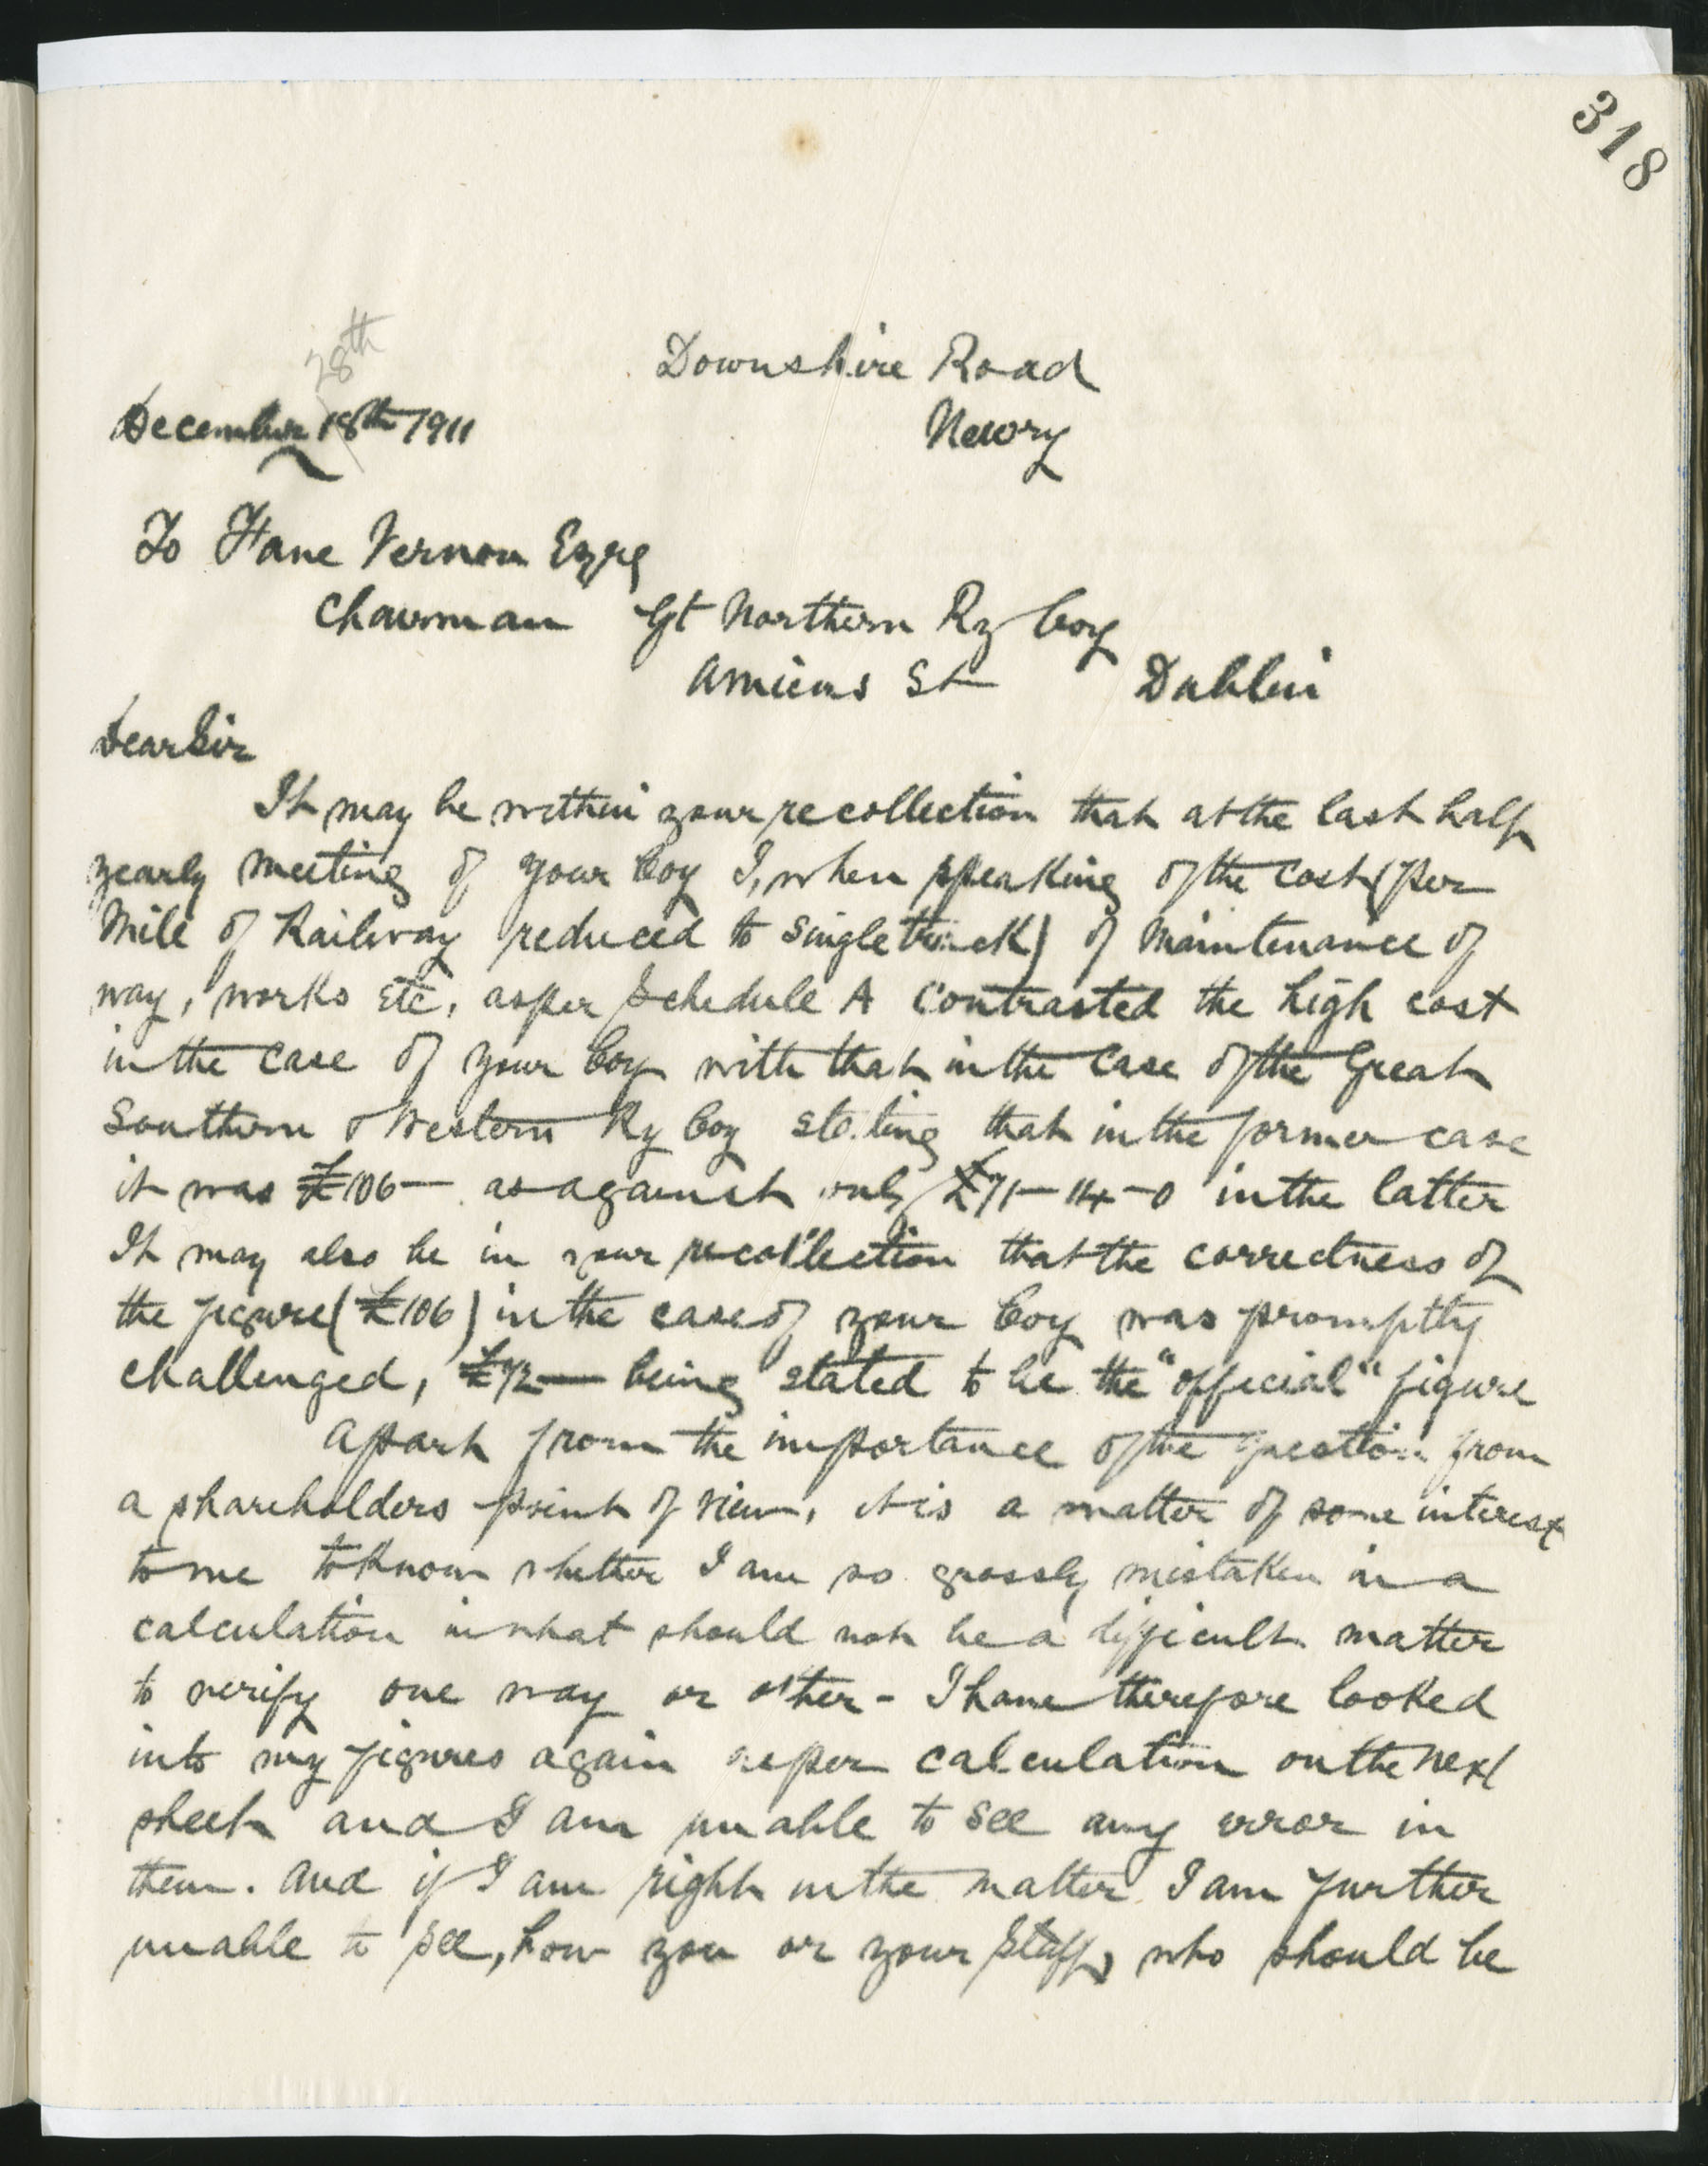 318
28th
Downshire Road
December 18th 1911
Newry
To Fane Vernon Esqre
Chairman Gt Northern Ry Coy
Amiens St Dublin
Dear Sir
It may be within your recollection that at the last half
yearly meeting of your Coy I, when speaking of the cost (per
Mile of Railway reduced to single track) of Maintenance of
way, works etc, as per Schedule A contrasted the high cost
in the case of your Coy with that in the case of the Great
Southern & Western Ry Coy stating that in the former case
it was £106 — as against only £71-14-0 in the latter
It may also be in your recollection that the correctness of
the figure (£106) in the case of your Coy was promptly
challenged, £72 — being stated to be the "official" figure
Apart from the importance of the question from
a shareholders point of view, it is a matter of some interest
to me to know whether I am so grossly mistaken in a
calculation in what should not be a difficult matter
to verify one way or other - I have therefore looked
into my figures again as per calculation on the next
sheet and I am unable to see any error in
them. And if I am right in the matter I am further
unable to see, how you or your staff, who should be